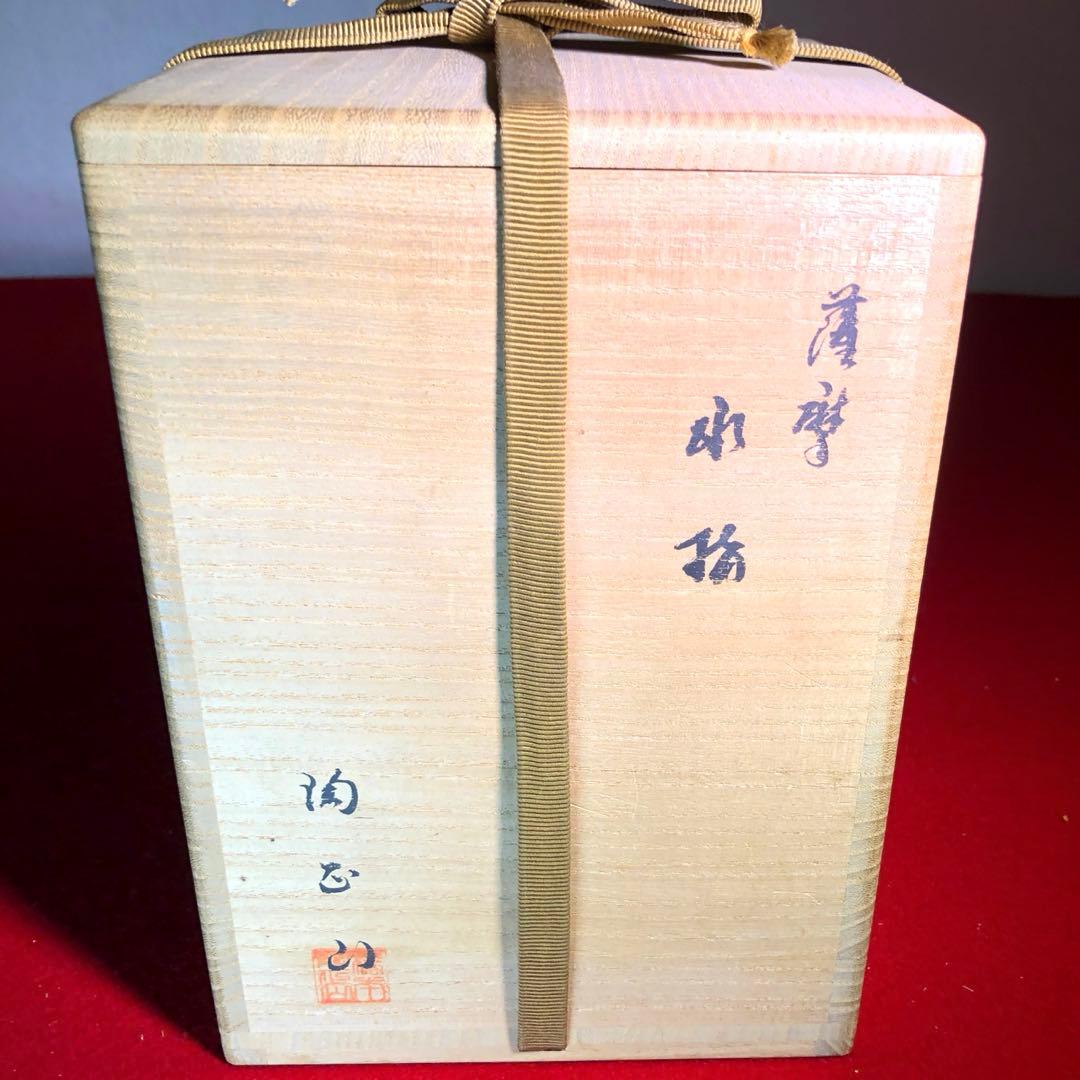 薩摩
水指
陶正山